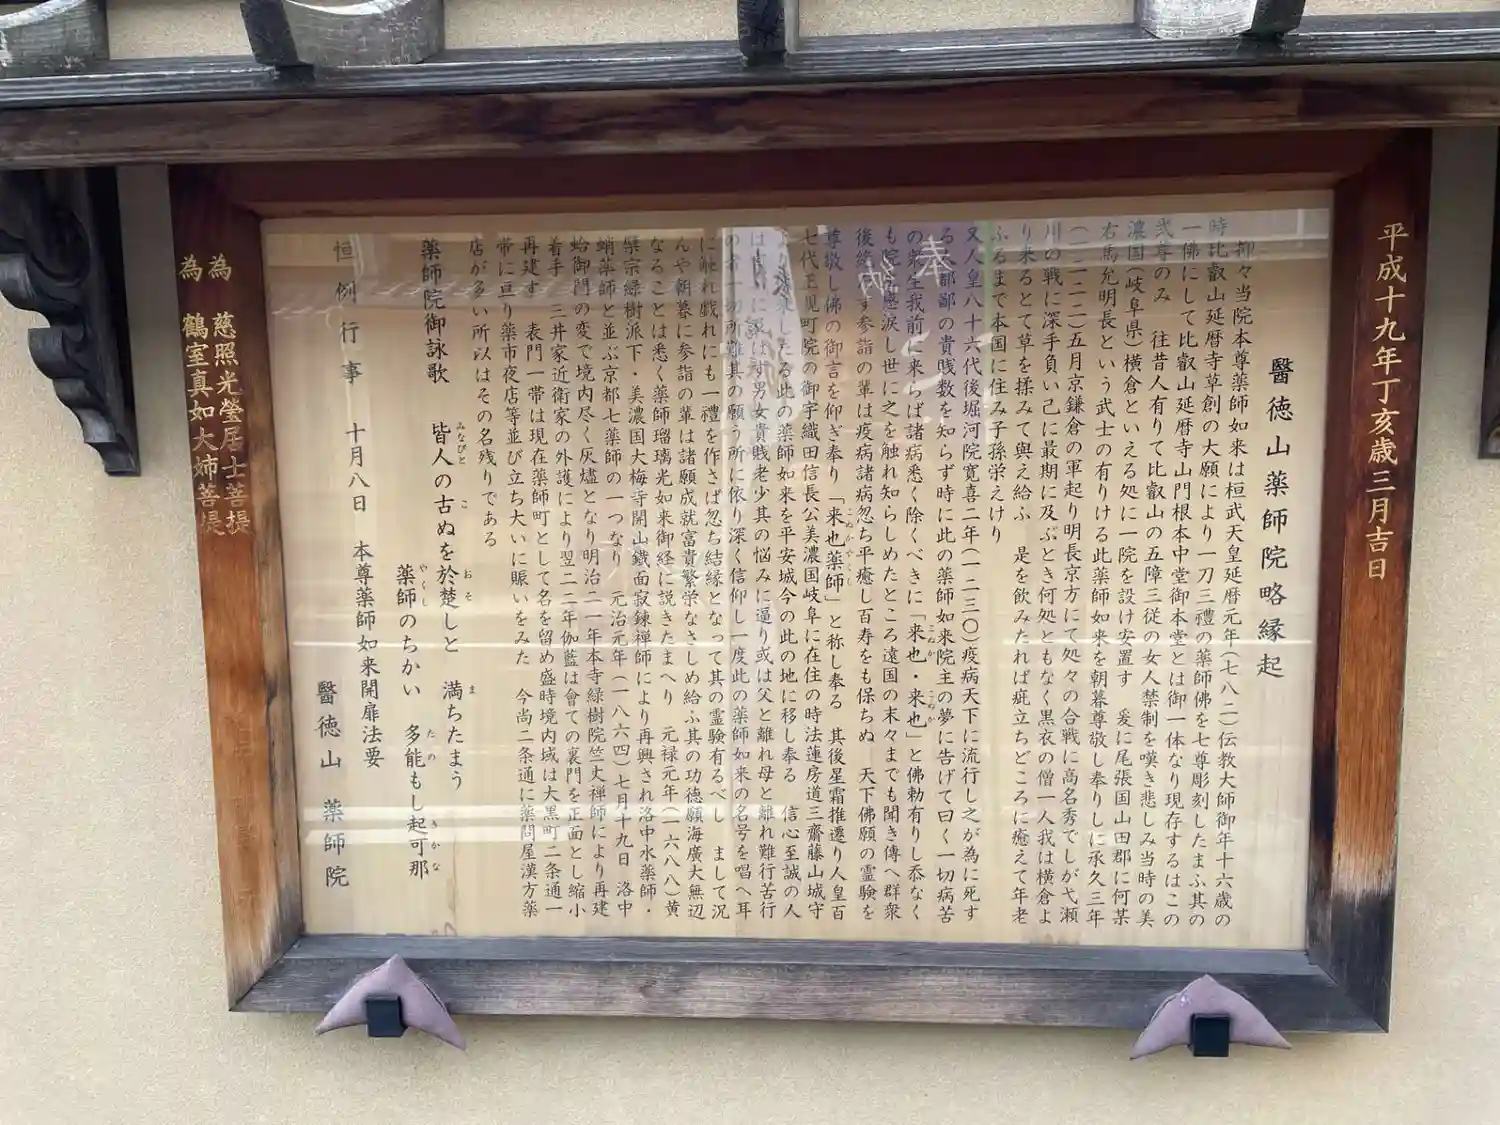 平成十九年丁亥歳三月吉日
醫徳山薬師院略縁起
抑々当院本尊薬師如来は桓武天皇延暦元年(七八二)伝教大師御年十六歳の
時比叡山延暦寺草創の大願により一刀三禮の薬師佛を七尊彫刻したまふ其の
一佛にして比叡山延暦寺山門根本中堂御本堂とは御一体なり現存するはこの
弐尊のみ 往昔人有りて比叡山の五障三従の女人禁制を嘆き悲しみ当時の美
濃国(岐阜県)横倉といえる処に一院を設け安置す 爰に尾張国山田郡に何某
右馬允明長という武士の有りける此薬師如来を朝暮尊敬し奉りしに承久三年
(一二二一)五月京鎌倉の軍起り明長京方にて処々の合戦に高名秀でしが弋瀬
川の戦に深手負い己に最期に及ぶとき何処ともなく黒衣の僧一人我は横倉よ
り来るとて草を揉みて與え給ふ 是を飲みたれば疵立ちどころに癒えて年老
ふるまで本国に住み子孫栄えけり
又人皇八十六代後堀河院寛喜二年(一二三〇)疫病天下に流行し之が為に死す
る人都鄙の貴賎数を知らず時に此の薬師如来院主の夢に告げて曰く一切病苦
の衆生我前に来らば諸病悉く除くべきに「来也・来也」と佛勅有りし忝なく
も院主感涙し世に之を触れ知らしめたところ遠国の末々までも聞き傳へ群衆
後絶えず参詣の輩は疫病諸病忽ち平癒し百寿をも保ちぬ 天下佛願の霊験を
尊敬し佛の御言を仰ぎ奉り「来也薬師」と称し奉る 其後星霜推遷り人皇百
七代正親町院の御宇織田信長公美濃国岐阜に在住の時法蓮房道三齋藤山城守
より伝来したる此の薬師如来を平安城今の此の地に移し奉る 信心至誠の人
は言に謂はず男女貴賎老少其の悩みに逼り或は父と離れ母と離れ難行苦行
の者一切所難其の願う所に依り深く信仰し一度此の薬師如来の名号を唱へ耳
に触れ戯れにも一禮を作さば忽ち結縁となって其の霊験有るべし まして況
んや朝暮に参詣の輩は諸願成就富貴繁栄なさしめ給ふ其の功徳願海廣大無辺
なることは悉く薬師瑠璃光如来御経に説きたまへり 元禄元年(一六八八)黄
檗宗緑樹派下・美濃国大梅寺開山鐵面寂錬禅師により再興され洛中水薬師・
蛸薬師と並ぶ京都七薬師の一つなり 元治元年(一八六四)七月十九日 洛中
蛤御門の変で境内尽く灰燼となり明治二一年本寺緑樹院竺丈禅師により再建
着手 三井家近衛家の外護により翌二二年伽藍は會ての裏門を正面とし縮小
再建す 表門一帯は現在薬師町として名を留め盛時境内域は大黒町二条通一
帯に亘り薬市夜店等並び立ち大いに賑いをみた 今尚二条通に薬問屋漢方薬
店が多い所以はその名残りである
薬師院御詠歌 皆人の古ぬを於楚しと 満ちたまう
薬師のちかい 多能もし起可那
恒例行事 十月八日 本尊薬師如来開扉法要
醫徳山 薬師院
為 慈照光瑩居士菩提
為 鶴室真如大姉菩提